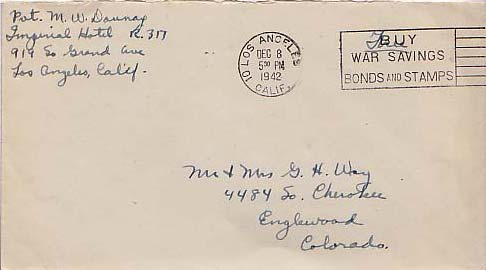 Pvt. M. W. Downay
Imperial Hotel R. 317
919 So Grand Ave
Los Angeles, Calif.
LOS ANGELES
10
DEC 8
5 30 PM
1942
CALIF.
Free
BUY
WAR SAVINGS
BONDS AND STAMPS
Mr & Mrs G. H. Way
4484 So. Cherokee
Englewood
Colorado.